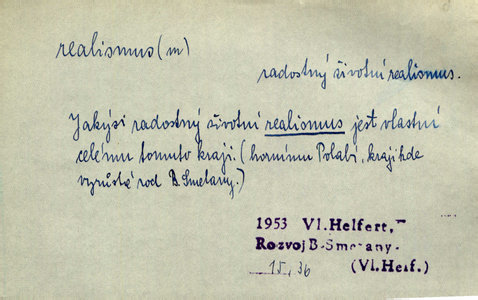 realismus (m)
radostný životní realismus.
Jakýsi radostný životní realismus jest vlastní
celému tomuto kraji. (hornímu Polabí, kraji kde
vyrůstá rod B. Smetany.)
1953 Vl. Helfert,
Rozvoj B. Smetany.
15, 36 (Vl. Helf.)